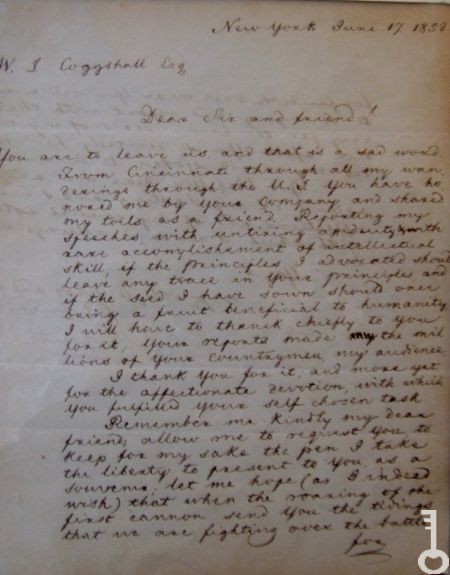 New York June 17 1852
W. T. Coggshall Esq
Dear Sir and friend!
You are to leave us, and that is a sad word.
From Cincinnati through all my wan
derings through the U. S. you have ho
nored me by your company and shared
my toils as a friend. Reporting my
speeches with untiring assiduity with
rare accomplishment of intellectual
skill, if the principles I advocated should
leave any trace in your principles, and
if the seed I have sown should once
bring a fruit beneficial to humanity
I will have to thanck chiefly to you
for it. Your reports made the mil
lions of your countrymen my audience.
I thank you for it, and more yet
for the affectionate devotion, with which
you fulfilled your self chosen task
Remember me kindly my dear
friend; allow me to request you to
keep for my sake the pen I take
the liberty to present to you as a
souvenir. let me hope (as I indeed
wish) that when the roaring of the
first cannon send you the tidings
that we are fighting over the battle
for